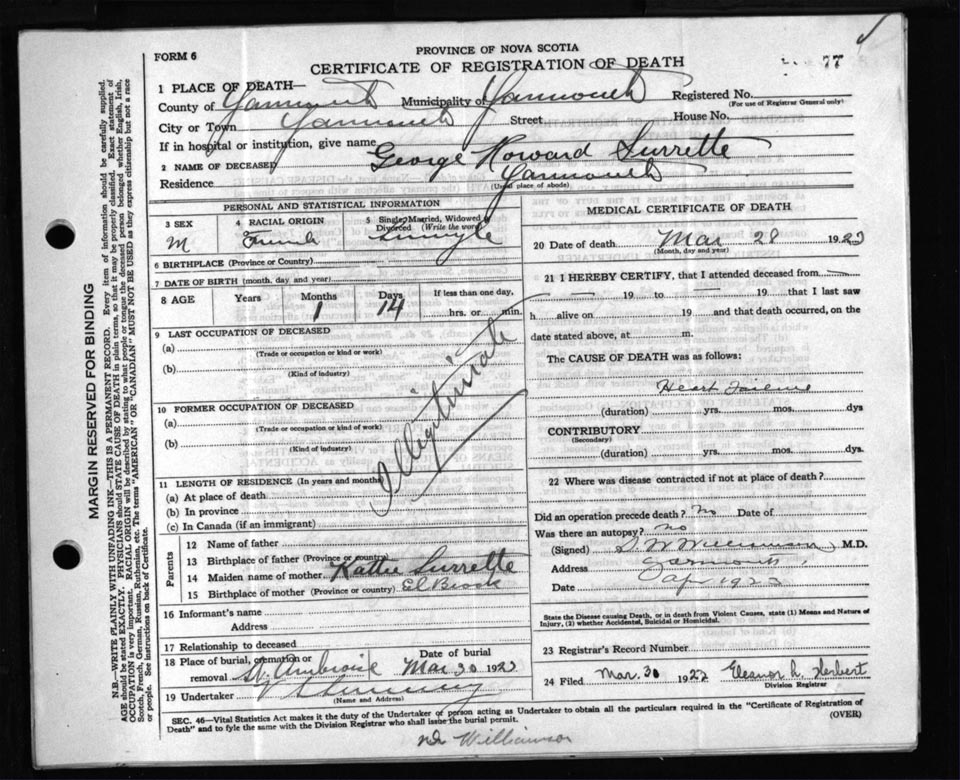 PROVINCE OF NOVA SCOTIA
FORM 6
CERTIFICATE OF REGISTRATION OF DEATH
77
1 PLACE OF DEATH—
County of Yarmouth Municipality of Yarmouth Registered No.
(For use of Registrar General only)
City or Town Yarmouth Street House No.
If in hospital or institution, give name
2 NAME OF DECEASED George Howard Surrette
Residence Yarmouth
(Usual place of abode)
PERSONAL AND STATISTICAL INFORMATION
3 SEX
M
4 RACIAL ORIGIN
French
5 Single, Married, Widowed or Divorced (Write the word)
Single
6 BIRTHPLACE (Province or Country)
7 DATE OF BIRTH (month, day, and year)
8 AGE Years Months Days If less than one day,
1 14 hrs. or min.
9 LAST OCCUPATION OF DECEASED
(a)
(Trade or occupation or kind or work)
(b)
(Kind of industry)
Illegitimate
10 FORMER OCCUPATION OF DECEASED
(a)
(Trade or occupation or kind of work)
(b)
(Kind of industry)
11 LENGTH OF RESIDENCE (In years and months)
(a) At place of death
(b) In province
(c) In Canada (if an immigrant)
Parents
12 Name of father
13 Birthplace of father (Province or country)
14 Maiden name of mother Kattie Surrette
15 Birthplace of mother (Province or country) El Brook
16 Informant's name
Address
17 Relationship to deceased
18 Place of burial, cremation or removal St. Ambroise
Date of burial Mar 30 1923
19 Undertaker
(Name and Address)
MEDICAL CERTIFICATE OF DEATH
20 Date of death Mar 28 1923
(Month, day and year)
21 I HEREBY CERTIFY, that I attended deceased from
19 to 19 that I last saw
h alive on 19 and that death occurred, on the
date stated above, at m.
The CAUSE OF DEATH was as follows:
Heart Failure
(duration) yrs. mos. dys
CONTRIBUTORY
(Secondary)
(duration) yrs. mos. dys.
22 Where was disease contracted if not at place of death?
Did an operation precede death? No Date of
Was there an autopsy? No
(Signed) Williamson M.D.
Address Yarmouth
Date Ap
State the Disease causing Death, or in death from Violent Causes, state (1) Means and Nature of
Injury, (2) whether Accidental, Suicidal or Homicidal.
23 Registrar's Record Number
24 Filed Mar. 30 1922 Eleanor L. Herbert
Division Registrar
SEC. 46—Vital Statistics Act makes it the duty of the Undertaker or person acting as Undertaker to obtain all the particulars required in the "Certificate of Registration of
Death" and to fyle the same with Division Registrar who shall issue the burial permit.
(OVER)
Williamson
MARGIN RESERVED FOR BINDING
N.B.—WRITE PLAINLY WITH UNFADING INK—THIS IS A PERMANENT RECORD. Every item of information should be carefully supplied.
AGE should be stated EXACTLY. PHYSICIANS should STATE CAUSE OF DEATH in plain terms, so that it may be properly classified. Exact statement of
OCCUPATION is very important. RACIAL ORIGIN will be described by stating to what people or tongue the deceased person belonged whether English, Irish,
Scotch, French, German, Russian, Ruthenian, etc. The terms "AMERICAN" OR "CANADIAN" MUST NOT BE USED as they express citizenship but not a race
or people. See instructions on back of Certificate.